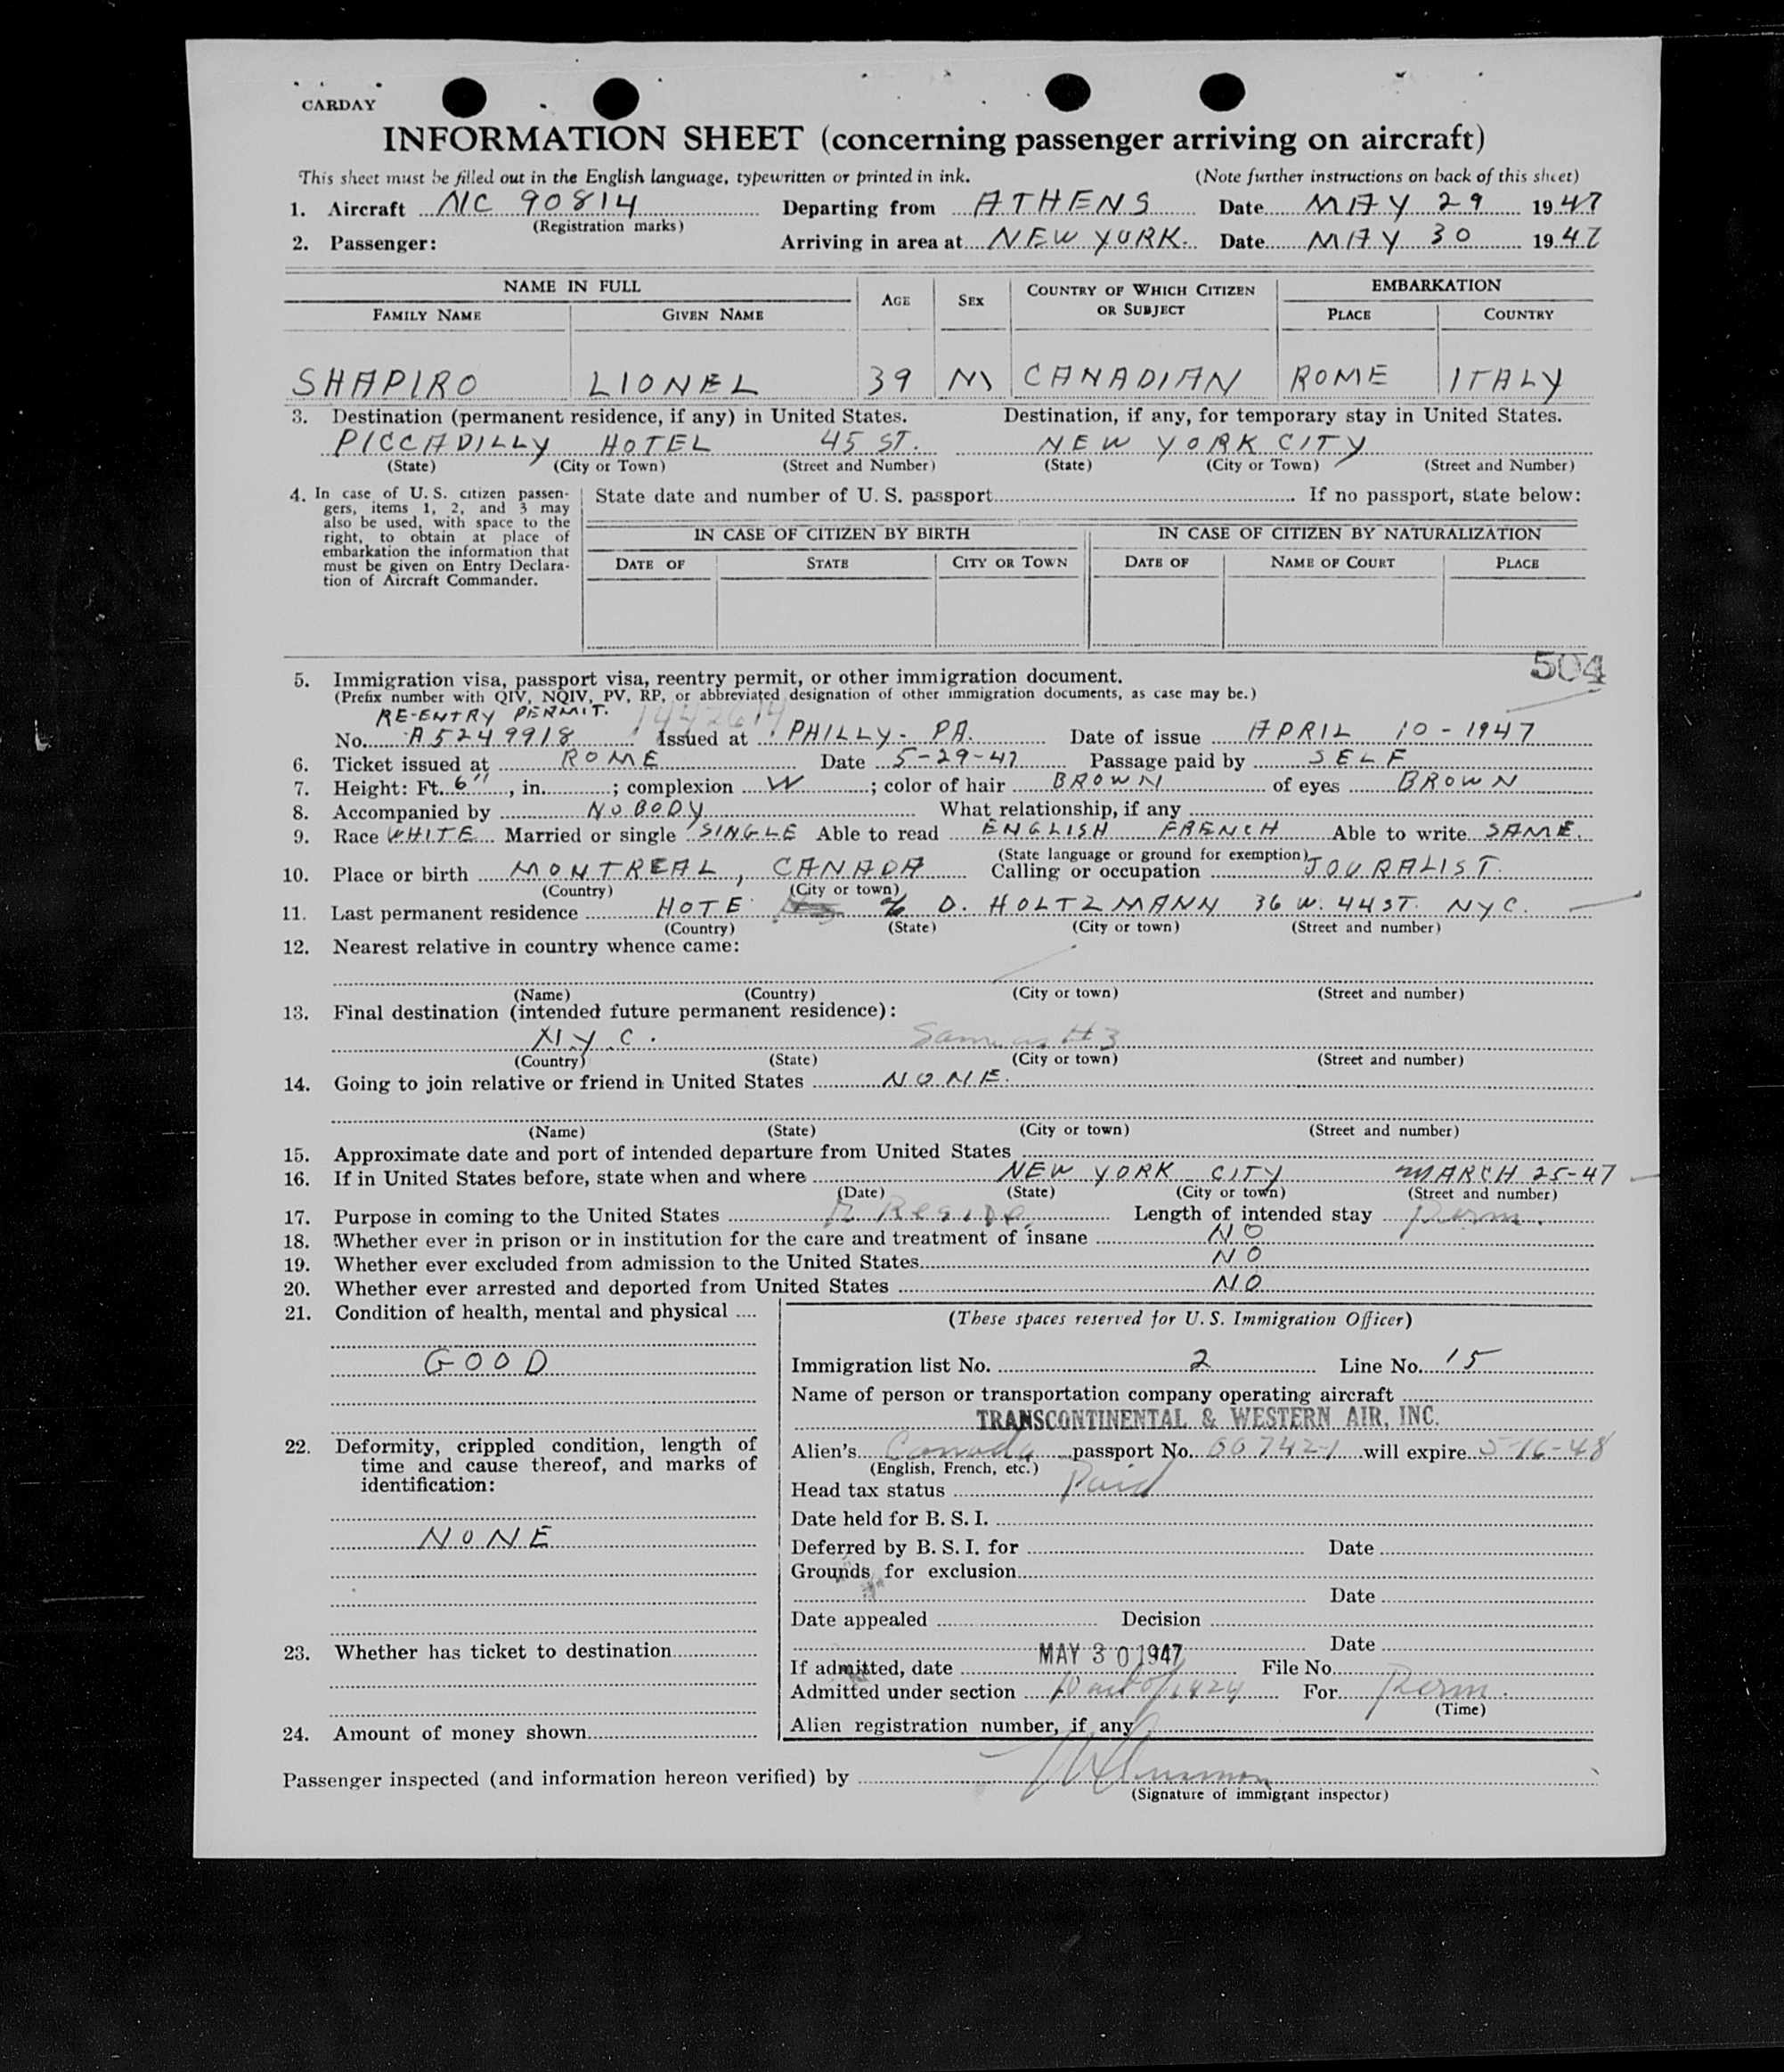 CARDAY
INFORMATION SHEET (concerning passenger arriving on aircraft)
This sheet must be filled out in the English language, typewritten or printed in ink. (Note further instructions on back of this sheet)
1. Aircraft NC 90814 Departing from ATHENS Date MAY 29 1947
(Registration marks)
2. Passenger: Arriving in area at NEW YORK. Date MAY 30 1947
NAME IN FULL AGE SEX COUNTRY OF WHICH CITIZEN OR SUBJECT EMBARKATION
FAMILY NAME GIVEN NAME PLACE COUNTRY
SHAPIRO LIONEL 39 M CANADIAN ROME ITALY
3. Destination (permanent residence, if any) in United States. Destination, if any, for temporary stay in United States.
PICCADILLY HOTEL 45 ST. NEW YORK CITY
(State) (City or Town) (Street and Number) (State) (City or Town) (Street and Number)
4. In case of U. S. citizen passen- State date and number of U. S. passport If no passport, state below:
gers, items 1, 2, and 3 may
also be used, with space to the
right, to obtain at place of IN CASE OF CITIZEN BY BIRTH IN CASE OF CITIZEN BY NATURALIZATION
embarkation the information that
must be given on Entry Declara- DATE OF STATE CITY OR TOWN DATE OF NAME OF COURT PLACE
tion of Aircraft Commander.
504
5. Immigration visa, passport visa, reentry permit, or other immigration document.
(Prefix number with QIV, NQIV, PV, RP, or abbreviated designation of other immigration documents, as case may be.)
RE-ENTRY PERMIT. 1442614
No. A5249918 Issued at PHILLY- PA. Date of issue APRIL 10-1947
6. Ticket issued at ROME Date 5-29-47 Passage paid by SELF
7. Height: Ft. 6", in. ; complexion W ; color of hair BROWN of eyes BROWN
8. Accompanied by NOBODY What relationship, if any
9. Race WHITE Married or single SINGLE Able to read ENGLISH FRENCH Able to write SAME.
(State language or ground for exemption)
10. Place or birth MONTREAL, CANADA Calling or occupation JOURALIST.
(Country) (City or town)
11. Last permanent residence HOTE % D. HOLTZMANN 36 W. 44 ST. NYC.
(Country) (State) (City or town) (Street and number)
12. Nearest relative in country whence came:
(Name) (Country) (City or town) (Street and number)
13. Final destination (intended future permanent residence):
N.Y.C. Same as #3
(Country) (State) (City or town) (Street and number)
14. Going to join relative or friend in United States NONE.
(Name) (State) (City or town) (Street and number)
15. Approximate date and port of intended departure from United States
16. If in United States before, state when and where NEW YORK CITY MARCH 25-47
(Date) (State) (City or town) (Street and number)
17. Purpose in coming to the United States Reside Length of intended stay Perm.
18. Whether ever in prison or in institution for the care and treatment of insane NO
19. Whether ever excluded from admission to the United States NO
20. Whether ever arrested and deported from United States NO
21. Condition of health, mental and physical
GOOD
22. Deformity, crippled condition, length of
time and cause thereof, and marks of
identification:
NONE
23. Whether has ticket to destination
24. Amount of money shown
(These spaces reserved for U. S. Immigration Officer)
Immigration list No. 2 Line No. 15
Name of person or transportation company operating aircraft
TRANSCONTINENTAL & WESTERN AIR, INC.
Alien's Canada passport No. will expire 5-16-48
(English, French, etc.)
Head tax status Paid
Date held for B. S. I.
Deferred by B. S. I. for Date
Grounds for exclusion
Date
Date appealed Decision
Date
If admitted, date MAY 30 1947 File No.
Admitted under section of 1924 For Perm.
(Time)
Alien registration number, if any
Passenger inspected (and information hereon verified) by
(Signature of immigrant inspector)